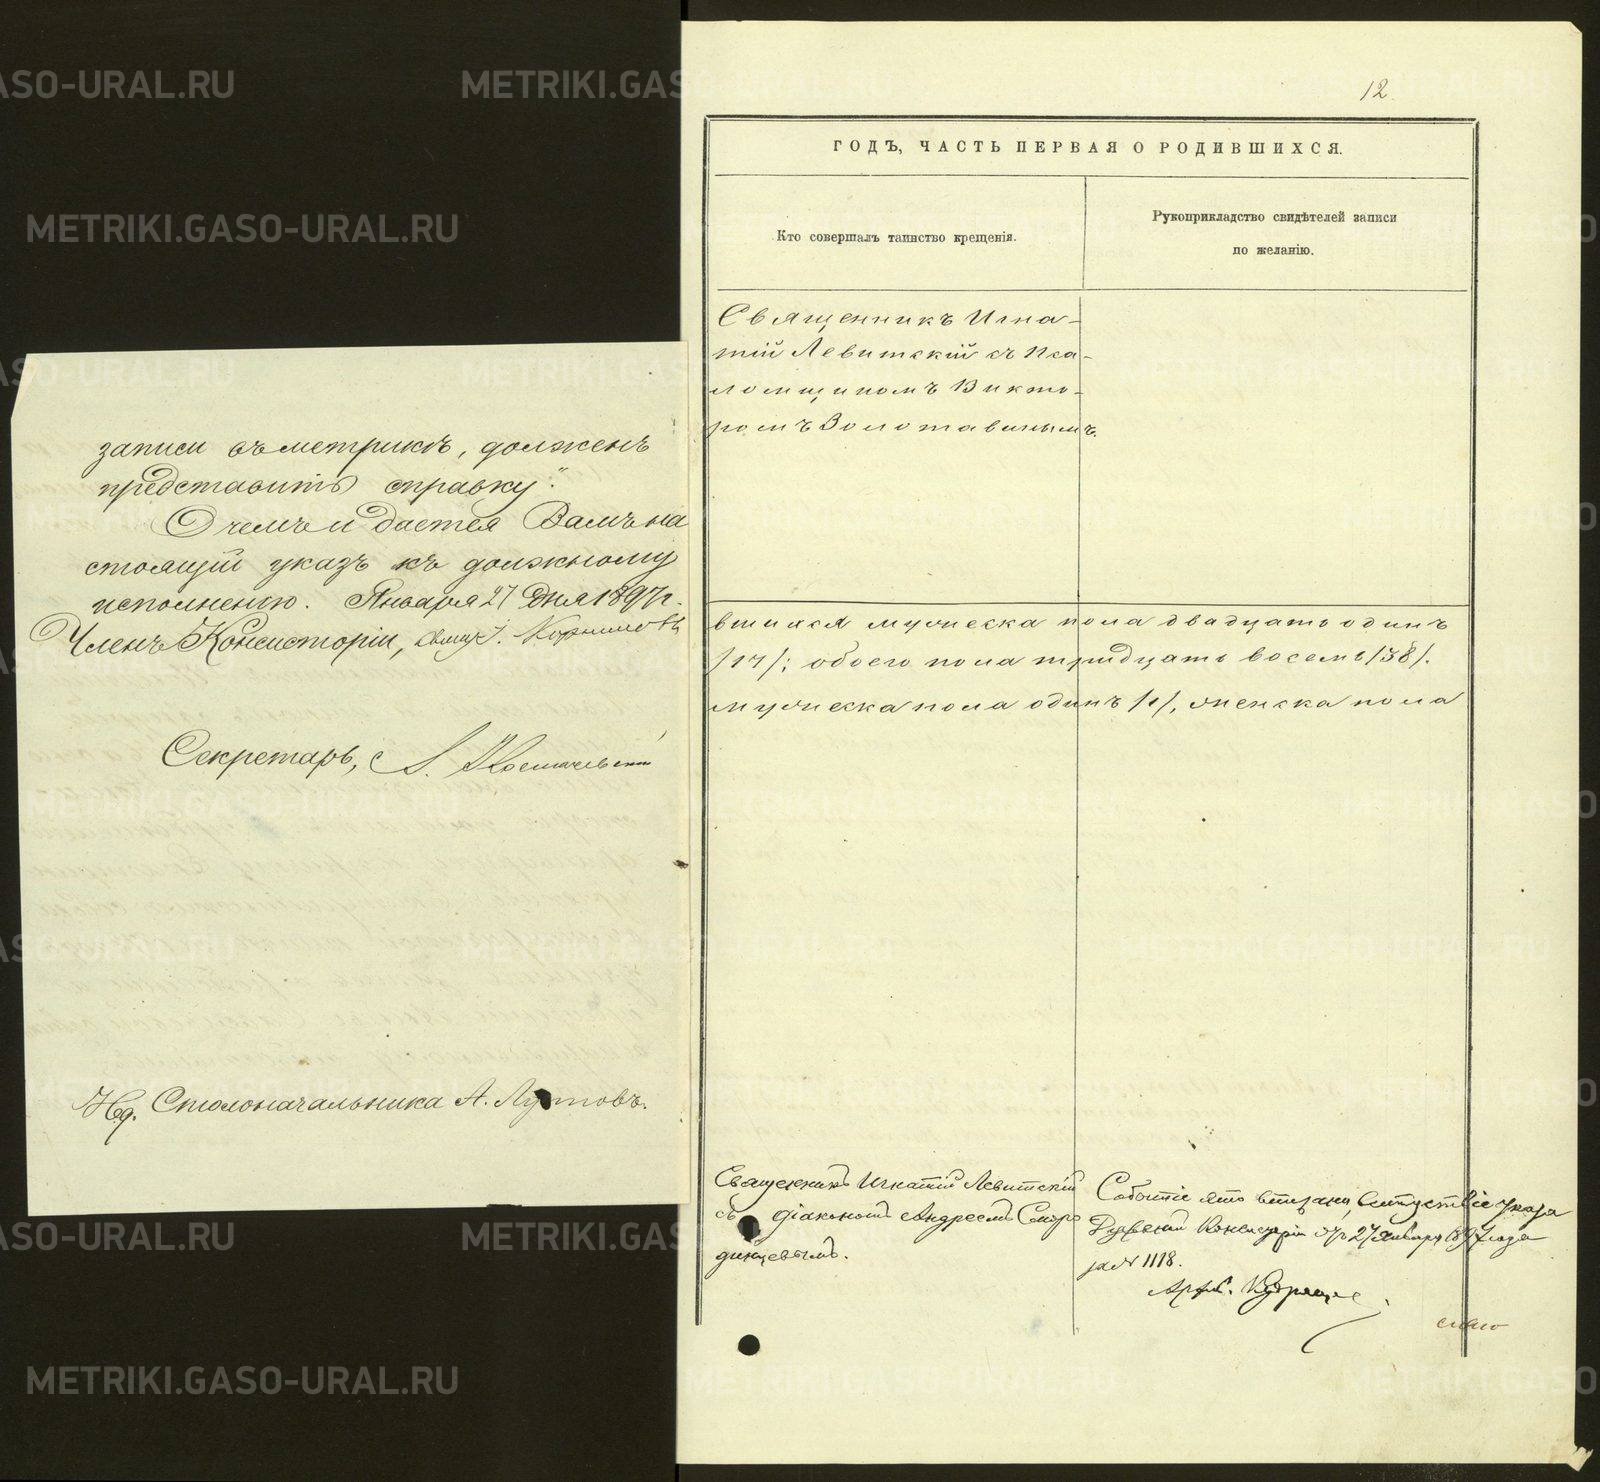 записи въ метрикѣ, долженъ
представить справку".
О чемъ и дается Вамъ на
стоящій указъ къ должному
исполненію. Января 27 дня 1897 г.
Членъ Консисторіи,
Секретарь,
И.д. Столоначальника А. Лутовъ.
12
ГОДЪ, ЧАСТЬ ПЕРВАЯ О РОДИВШИХСЯ.
Кто совершалъ таинство крещенія.
Рукоприкладство свидѣтелей записи
по желанію.
Священникъ Игна-
тій Левитскій съ Пса-
ломщикомъ Викто-
ромъ Золотавинымъ.
вшихся мужеска пола двадцать одинъ
/17/; обоего пола тридцать восемь /38/.
мужеска пола одинъ /1/, женска пола
Священникъ Игнатій Левитскій
съ діакономъ Андреемъ Сморо
динцевымъ.
Событіе это вписано, вслѣдствіе указа
Духовной Консисторіи отъ 27 Января 1897 года
за № 1118.
METRIKI.GASO-URAL.RU